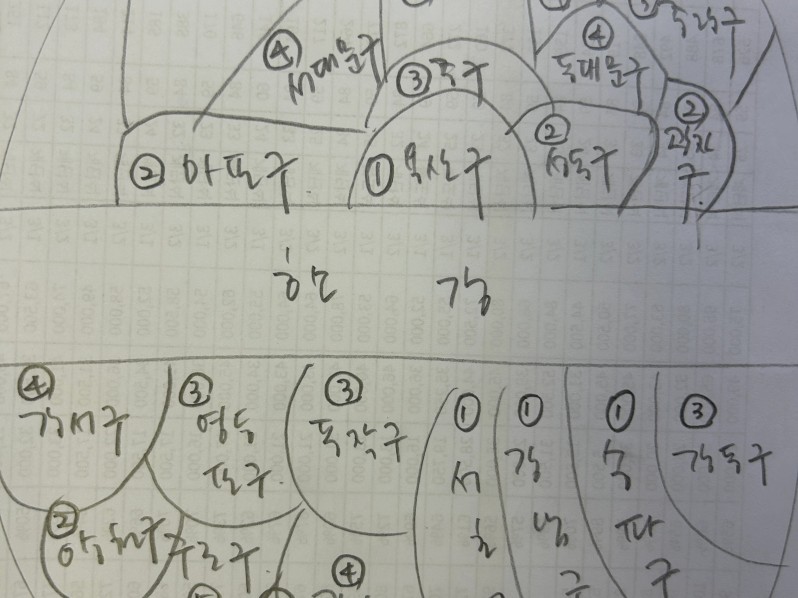 ④ 서대문구
③ 중구
④
동대문구
② 마포구
① 용산구
②
성동구
②
광진
구
한 강
④
강서구
③
영등
포구
③
동작구
①
서
초
①
강
남
구
①
송
파
구
③
강동구
②
양천구
구로구
④